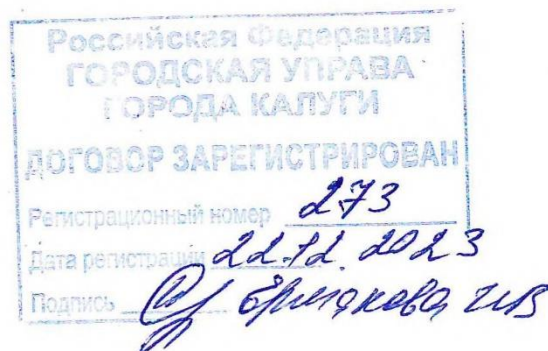 Российская Федерация
ГОРОДСКАЯ УПРАВА
ГОРОДА КАЛУГИ
ДОГОВОР ЗАРЕГИСТРИРОВАН
Регистрационный номер 273
Дата регистрации 22.12.2023
Подпись Ермакова ИВ